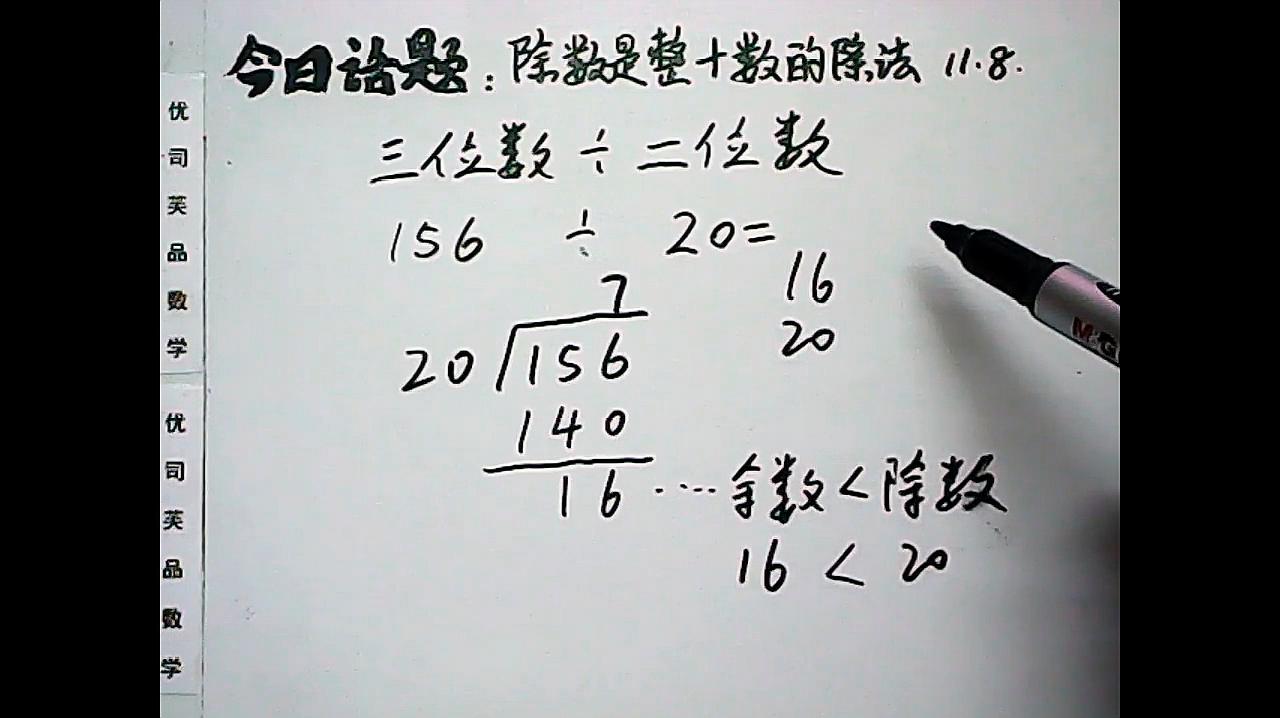 今日话题：除数是整十数的除法 11.8.
三位数 ÷ 二位数
156 ÷ 20=
16
20
7
20 156
140
16 ···· 余数 < 除数
16 < 20
优司芙品数学
优司芙品数学
M&G